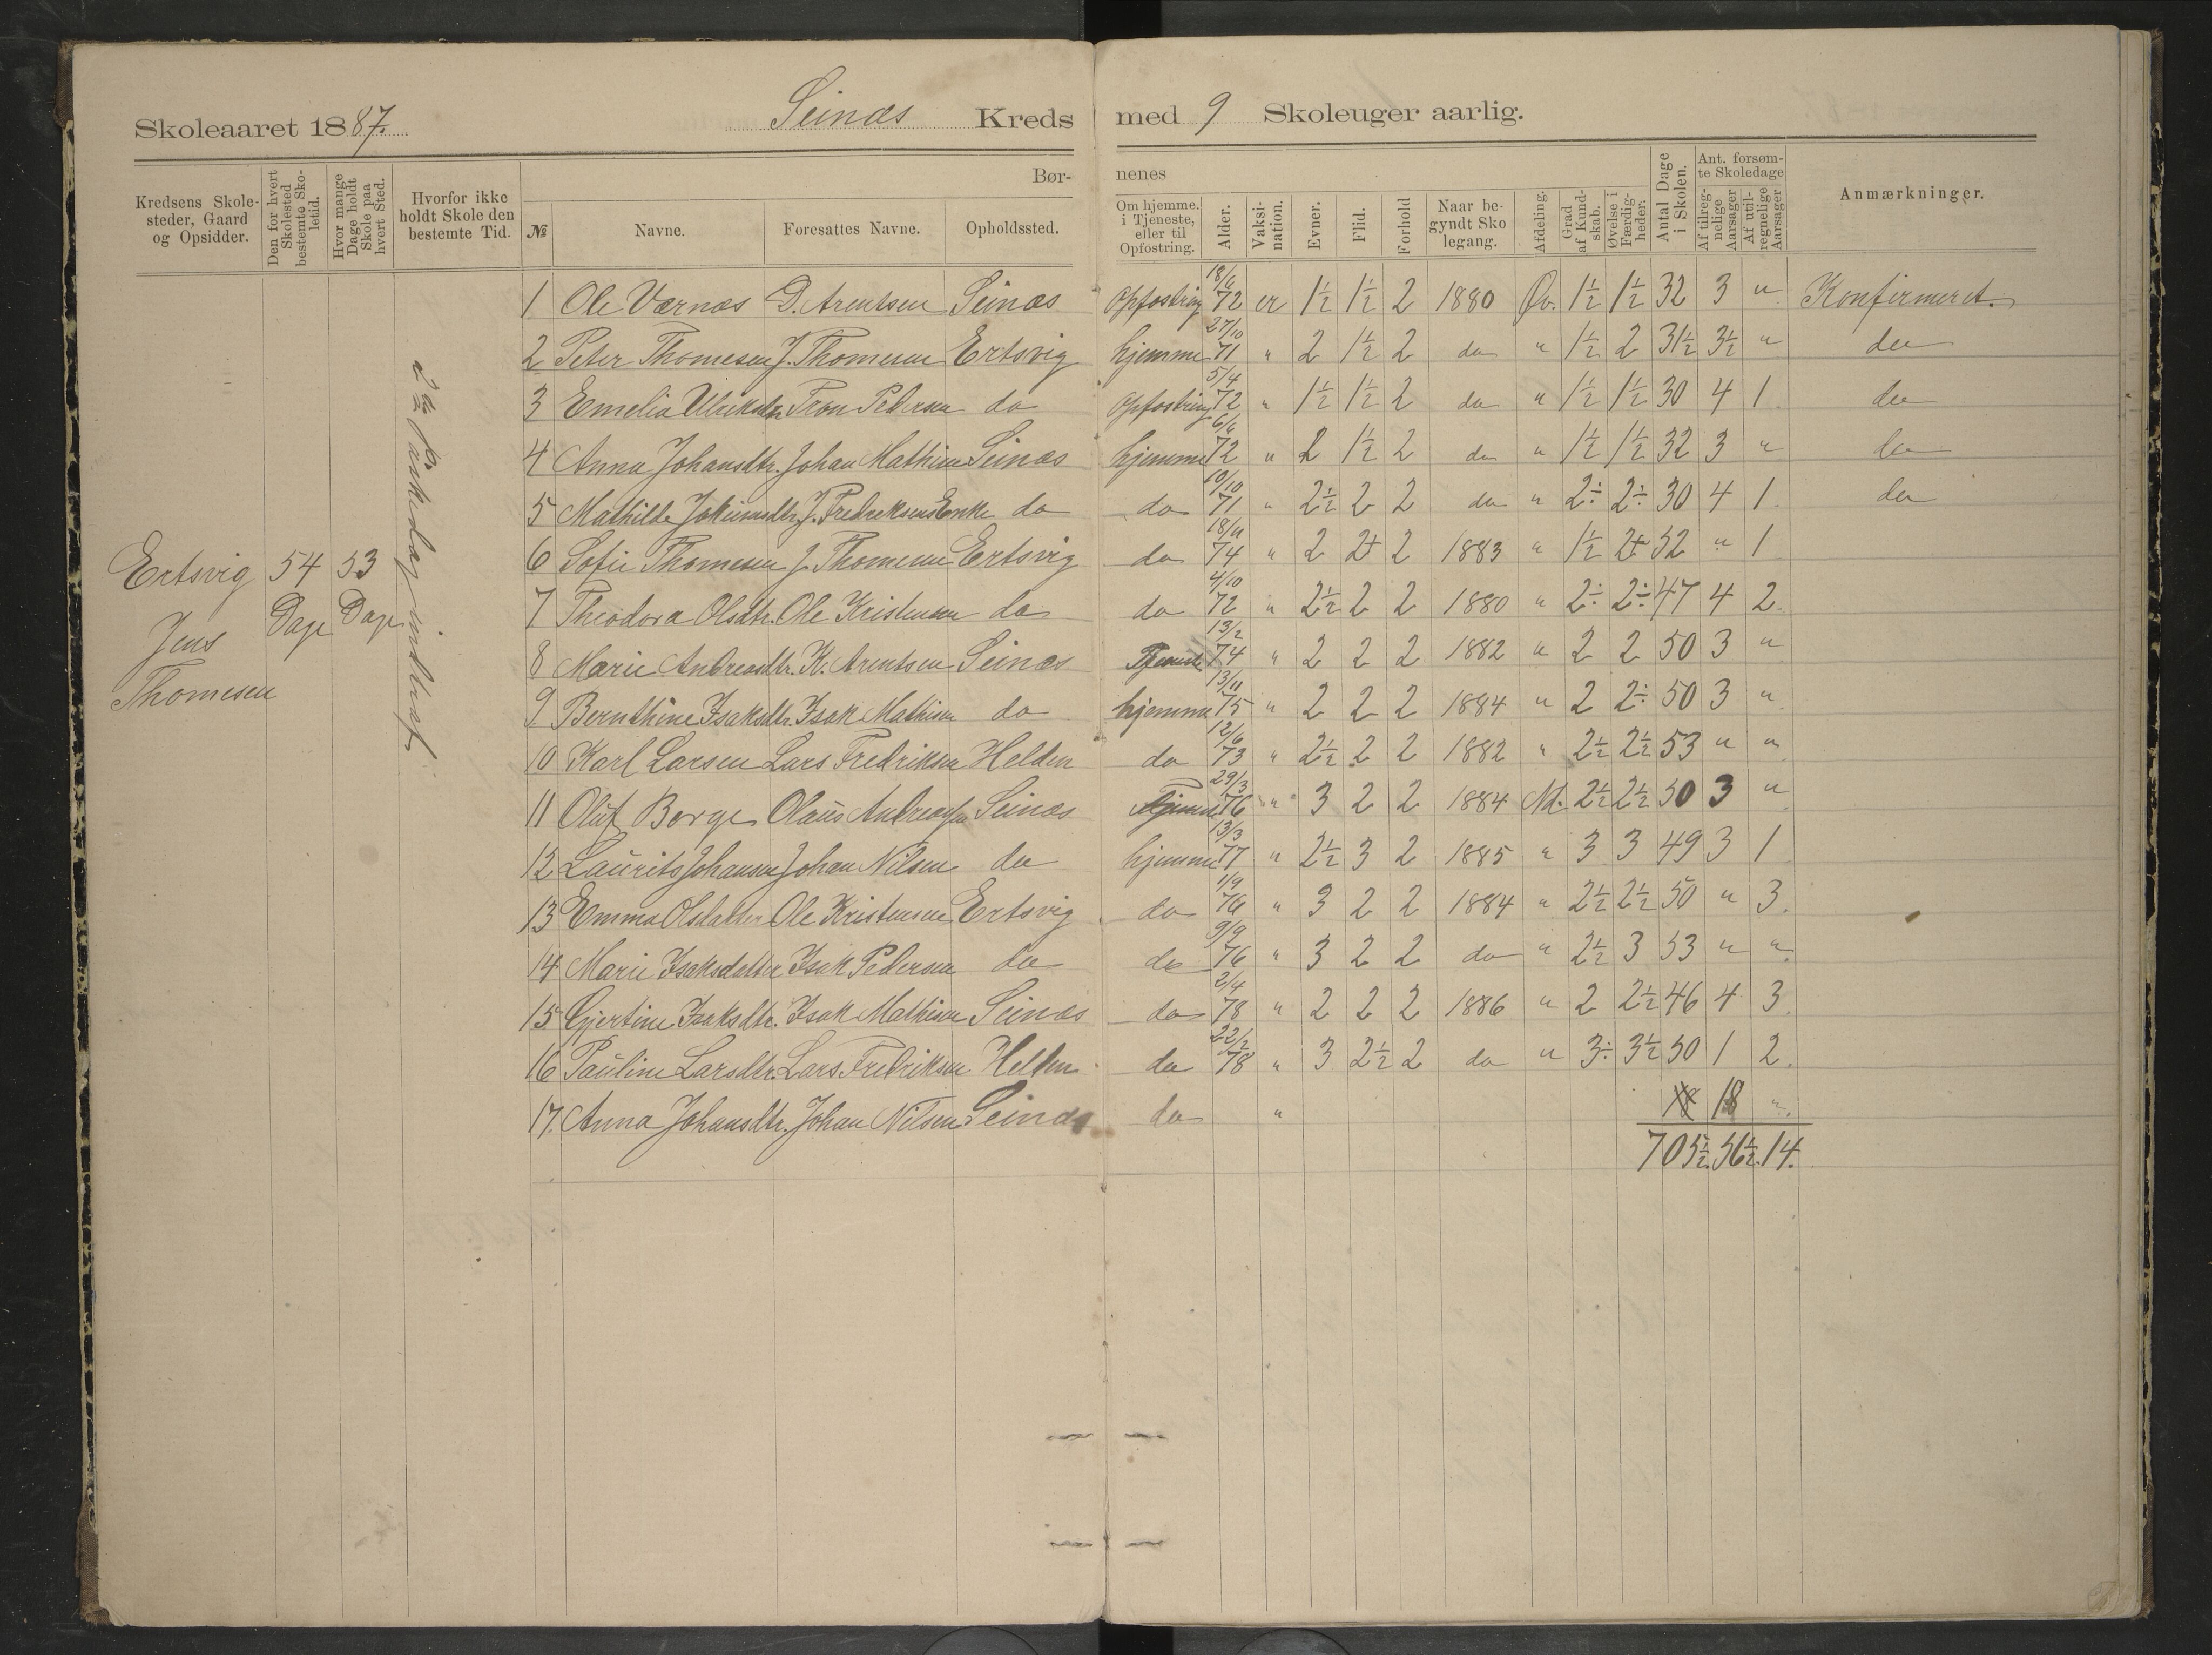 Skoleaaret 1887. Seines Kreds med 9 Skoleuger aarlig.
Kredsens Skolesteder, Gaard og Opsidder.
Den for hvert Skolested bestemte Skoletid.
Hvor mange Dage holdt Skole paa hvert Sted.
Hvorfor ikke holdt Skole den bestemte Tid.
Børnenes
№ Navne. Foresattes Navne. Opholdssted. Om hjemme. i Tjeneste, eller til Opfostring. Alder. Vaksination. Evner. Flid. Forhold Naar begyndt Skolegang. Afdeling. Grad af Kundskab. Øvelse i Færdigheder. Antal Dage i Skolen. Ant. forsømte Skoledage Af tilregnelige Aarsager Af utilregnelige Aarsager Anmærkninger.
Ertsvig 54 53
Dage Dage
Jens
Thomesen
1 Ole Værnes D. Arentsen Seines Opfostring 18/6 72 er 1½ 1½ 2 1880 Øv. 1½ 1½ 32 3 " Konfirmeret.
2 Peter Thomesen J. Thomesen Ertsvig hjemme 27/10 71 " 2 1½ 2 do " 1½ 2 31½ 3½ " do
3 Emelia Ulriksdtr Tron Pedersen do Opfostring 5/4 72 " 1½ 1½ 2 do " 1½ 1½ 30 4 1 do
4 Anna Johansdtr. Johan Mathisen Seines hjemme 6/6 72 " 2 1½ 2 do " 1½ 1½ 32 3 " do
5 Mathilde Jokumsdtr J. Fredreksens Enke do do 10/10 71 " 2½ 2 2 do " 2÷ 2÷ 30 4 1 do
6 Sofie Thomesen J. Thomesen Ertsvig do 18/11 74 " 2 2+ 2 1883 " 1½ 2+ 52 " 1
7 Theodora Olsdtr. Ole Kristensen do do 4/10 72 " 2½ 2 2 1880 " 2÷ 2÷ 47 4 2.
8 Marie Andreasdtr. K. Arentsen Seines Tjeneste 13/2 74 " 2 2 2 1882 " 2 2 50 3 "
9 Bernthine Isaksdtr Isak Mathisen do hjemme 13/11 75 " 2 2 2 1884 " 2 2÷ 50 3 "
10 Karl Larsen Lars Fredriksen Helden do 12/6 73 " 2½ 2 2 1882 " 2½ 2½ 53 " "
11 Oluf Berge Olaus Andreassen Seines 29/3 76 " 3 2 2 1884 Nd. 2½ 2½ 50 3 "
12 Laurits Johansen Johan Nilsen do hjemme 13/3 77 " 2½ 3 2 1885 " 3 3 49 3 1
13 Emma Olsdatter Ole Kristensen Ertsvig do 1/9 76 " 3 2 2 1884 " 2½ 2½ 50 " 3.
14 Marie Isaksdatter Isak Pedersen do do 9/9 76 " 3 2 2 do " 2½ 3 53 " "
15 Gjertine Isaksdtr. Isak Mathisen Seines do 2/4 78 " 2 2 2 1886 " 2 2½ 46 4 3.
16 Pauline Larsdtr. Lars Fredriksen Helden do 22/2 78 " 3 2½ 2 do " 3÷ 3½ 50 1 2.
17. Anna Johansdtr. Johan Nilsen Seines do " 18 ".
705½. 56½. 14.